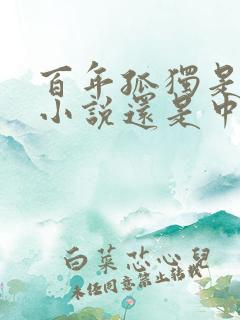 百年孤獨是
小說還是中
白菜芯心兒
未经同意禁止转载